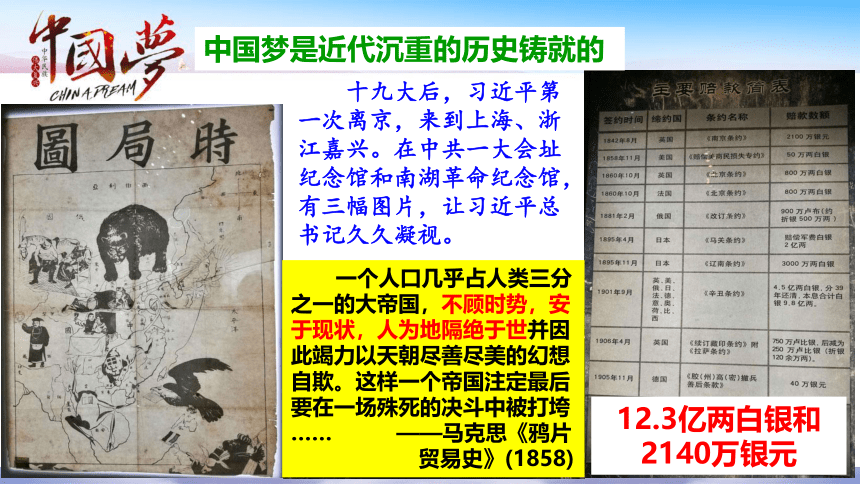 中国梦
中华民族
伟大复兴
CHINA.DREAM
中国梦是近代沉重的历史铸就的
時局圖
十九大后，习近平第
一次离京，来到上海、浙
江嘉兴。在中共一大会址
纪念馆和南湖革命纪念馆，
有三幅图片，让习近平总
书记久久凝视。
一个人口几乎占人类三分
之一的大帝国，不顾时势，安
于现状，人为地隔绝于世并因
此竭力以天朝尽善尽美的幻想
自欺。这样一个帝国注定最后
要在一场殊死的决斗中被打垮
…… ——马克思《鸦片
贸易史》(1858)
主要赔款简表
签约时间 缔约国 条约名称 赔款数额
1842年8月 英国 《南京条约》 2100 万银元
1858年11月 美国 《赔偿美商民损失专约》 50 万两白银
1860年10月 英国 《北京条约》 800 万两白银
1860年10月 法国 《北京条约》 800 万两白银
1881年2月 俄国 《改订条约》 900 万卢布(约
折银 500 万两)
1895年4月 日本 《马关条约》 赔偿军费白银
2 亿两
1895年11月 日本 《辽南条约》 3000 万两白银
1901年9月 英、美、
俄、日、
法、德、
意、奥、
荷、比、
西 《辛丑条约》 4.5 亿两白银，分 39
年还清，本息合计白
银 9.8 亿两。
1906年4月 英国 《续订藏印条约》附
《拉萨条约》 750 万卢比银，后减为
250 万卢比银（折银
120 余万两）。
1905年11月 德国 《胶(州)高(密)撤兵
善后条款》 40 万银元
12.3亿两白银和
2140万银元